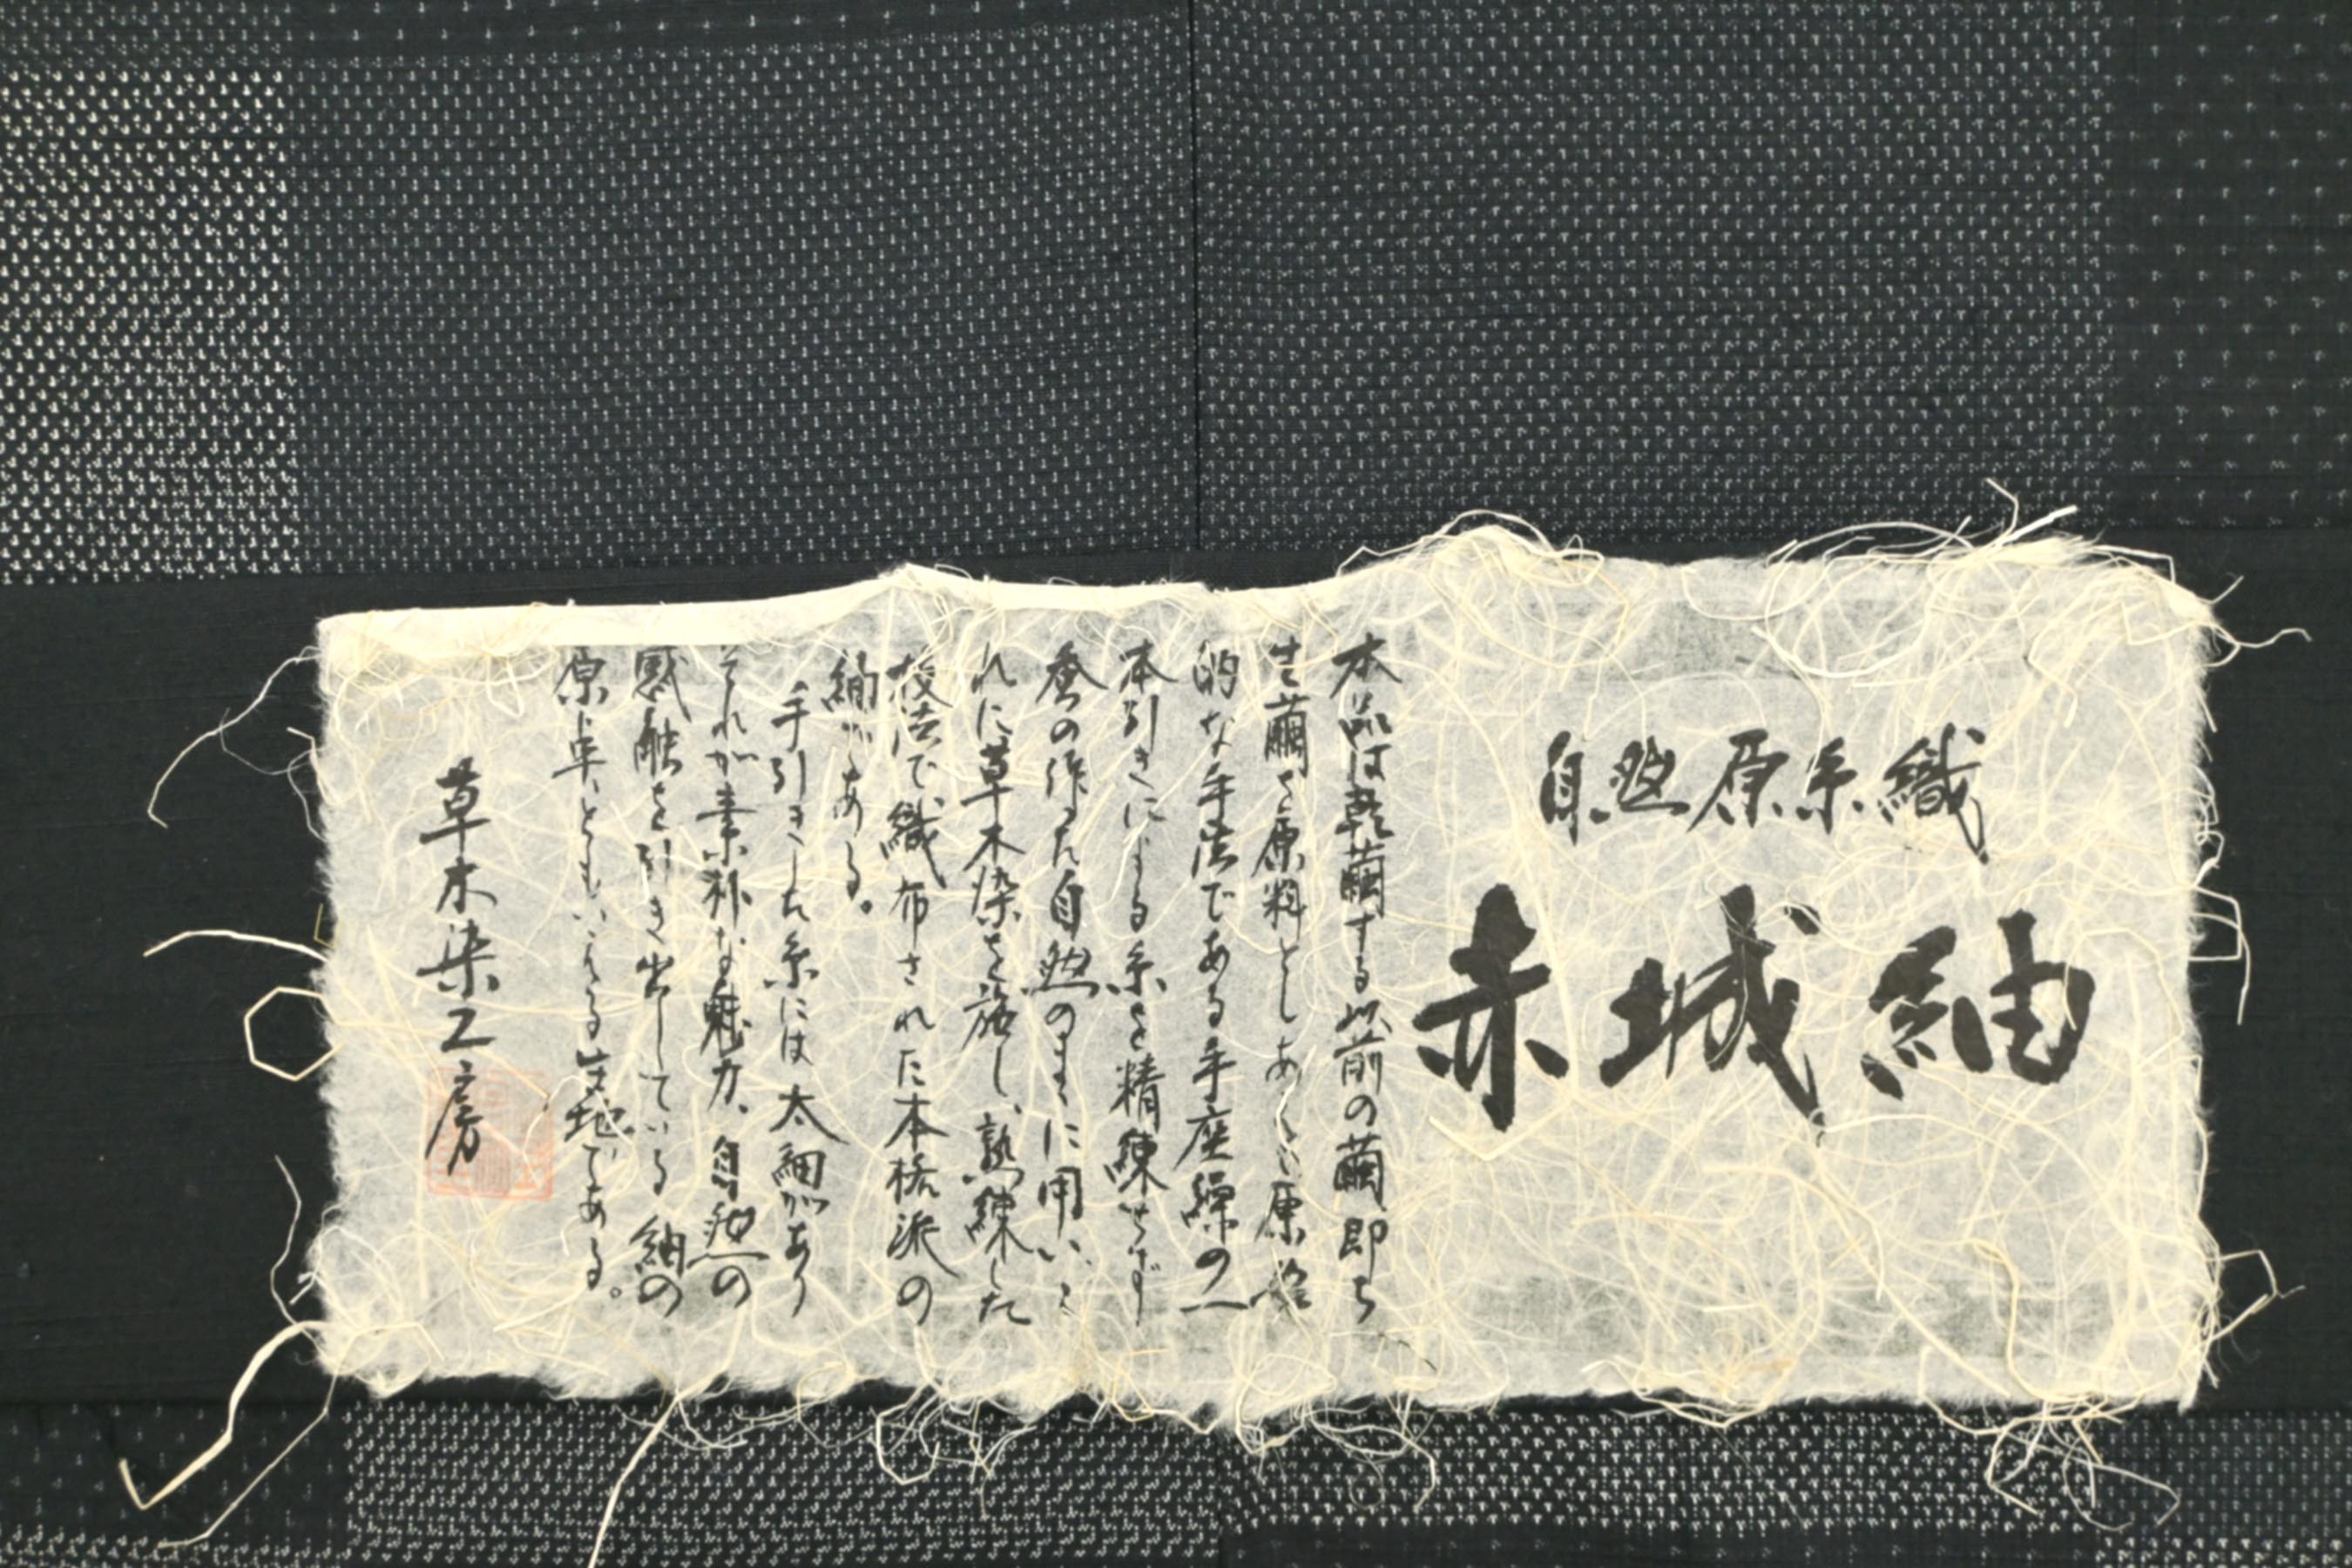 自然原糸織
赤城紬
本品は乾繭する以前の繭即ち
生繭を原料としあくま原始
的な手法である手座繰の一
本引きによる糸を精練せず
蚕の作った自然のままに用いこ
れに草木染を施し、熟練した
技法で織布された本格派の
紬がある。
手引きした糸には太細があり
それが素朴な魅力、自然の
感触を引き出している紬の
原点ともいえる生地である。
草木染工房